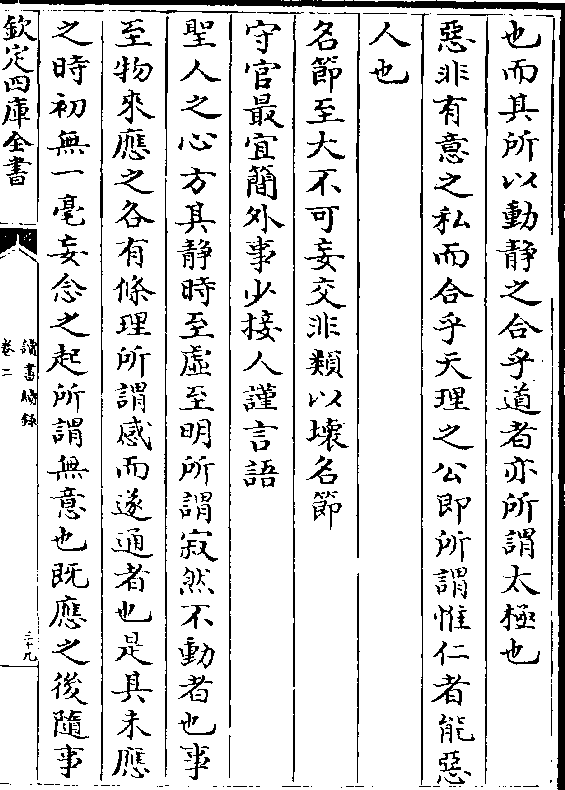 也而其所以動静之合乎道者亦所謂太極也
惡非有意之私而合乎天理之公即所謂惟仁者能惡
人也
名節至大不可妄交非類以壊名節
守官最宜簡外事少接人謹言語
聖人之心方其静時至虚至明所謂寂然不動者也事
至物來應之各有條理所謂感而遂通者也是其未應
之時初無一毫妄念之起所謂無意也既應之後隨事
欽定四庫全書
讀書時録
卷二
三十九